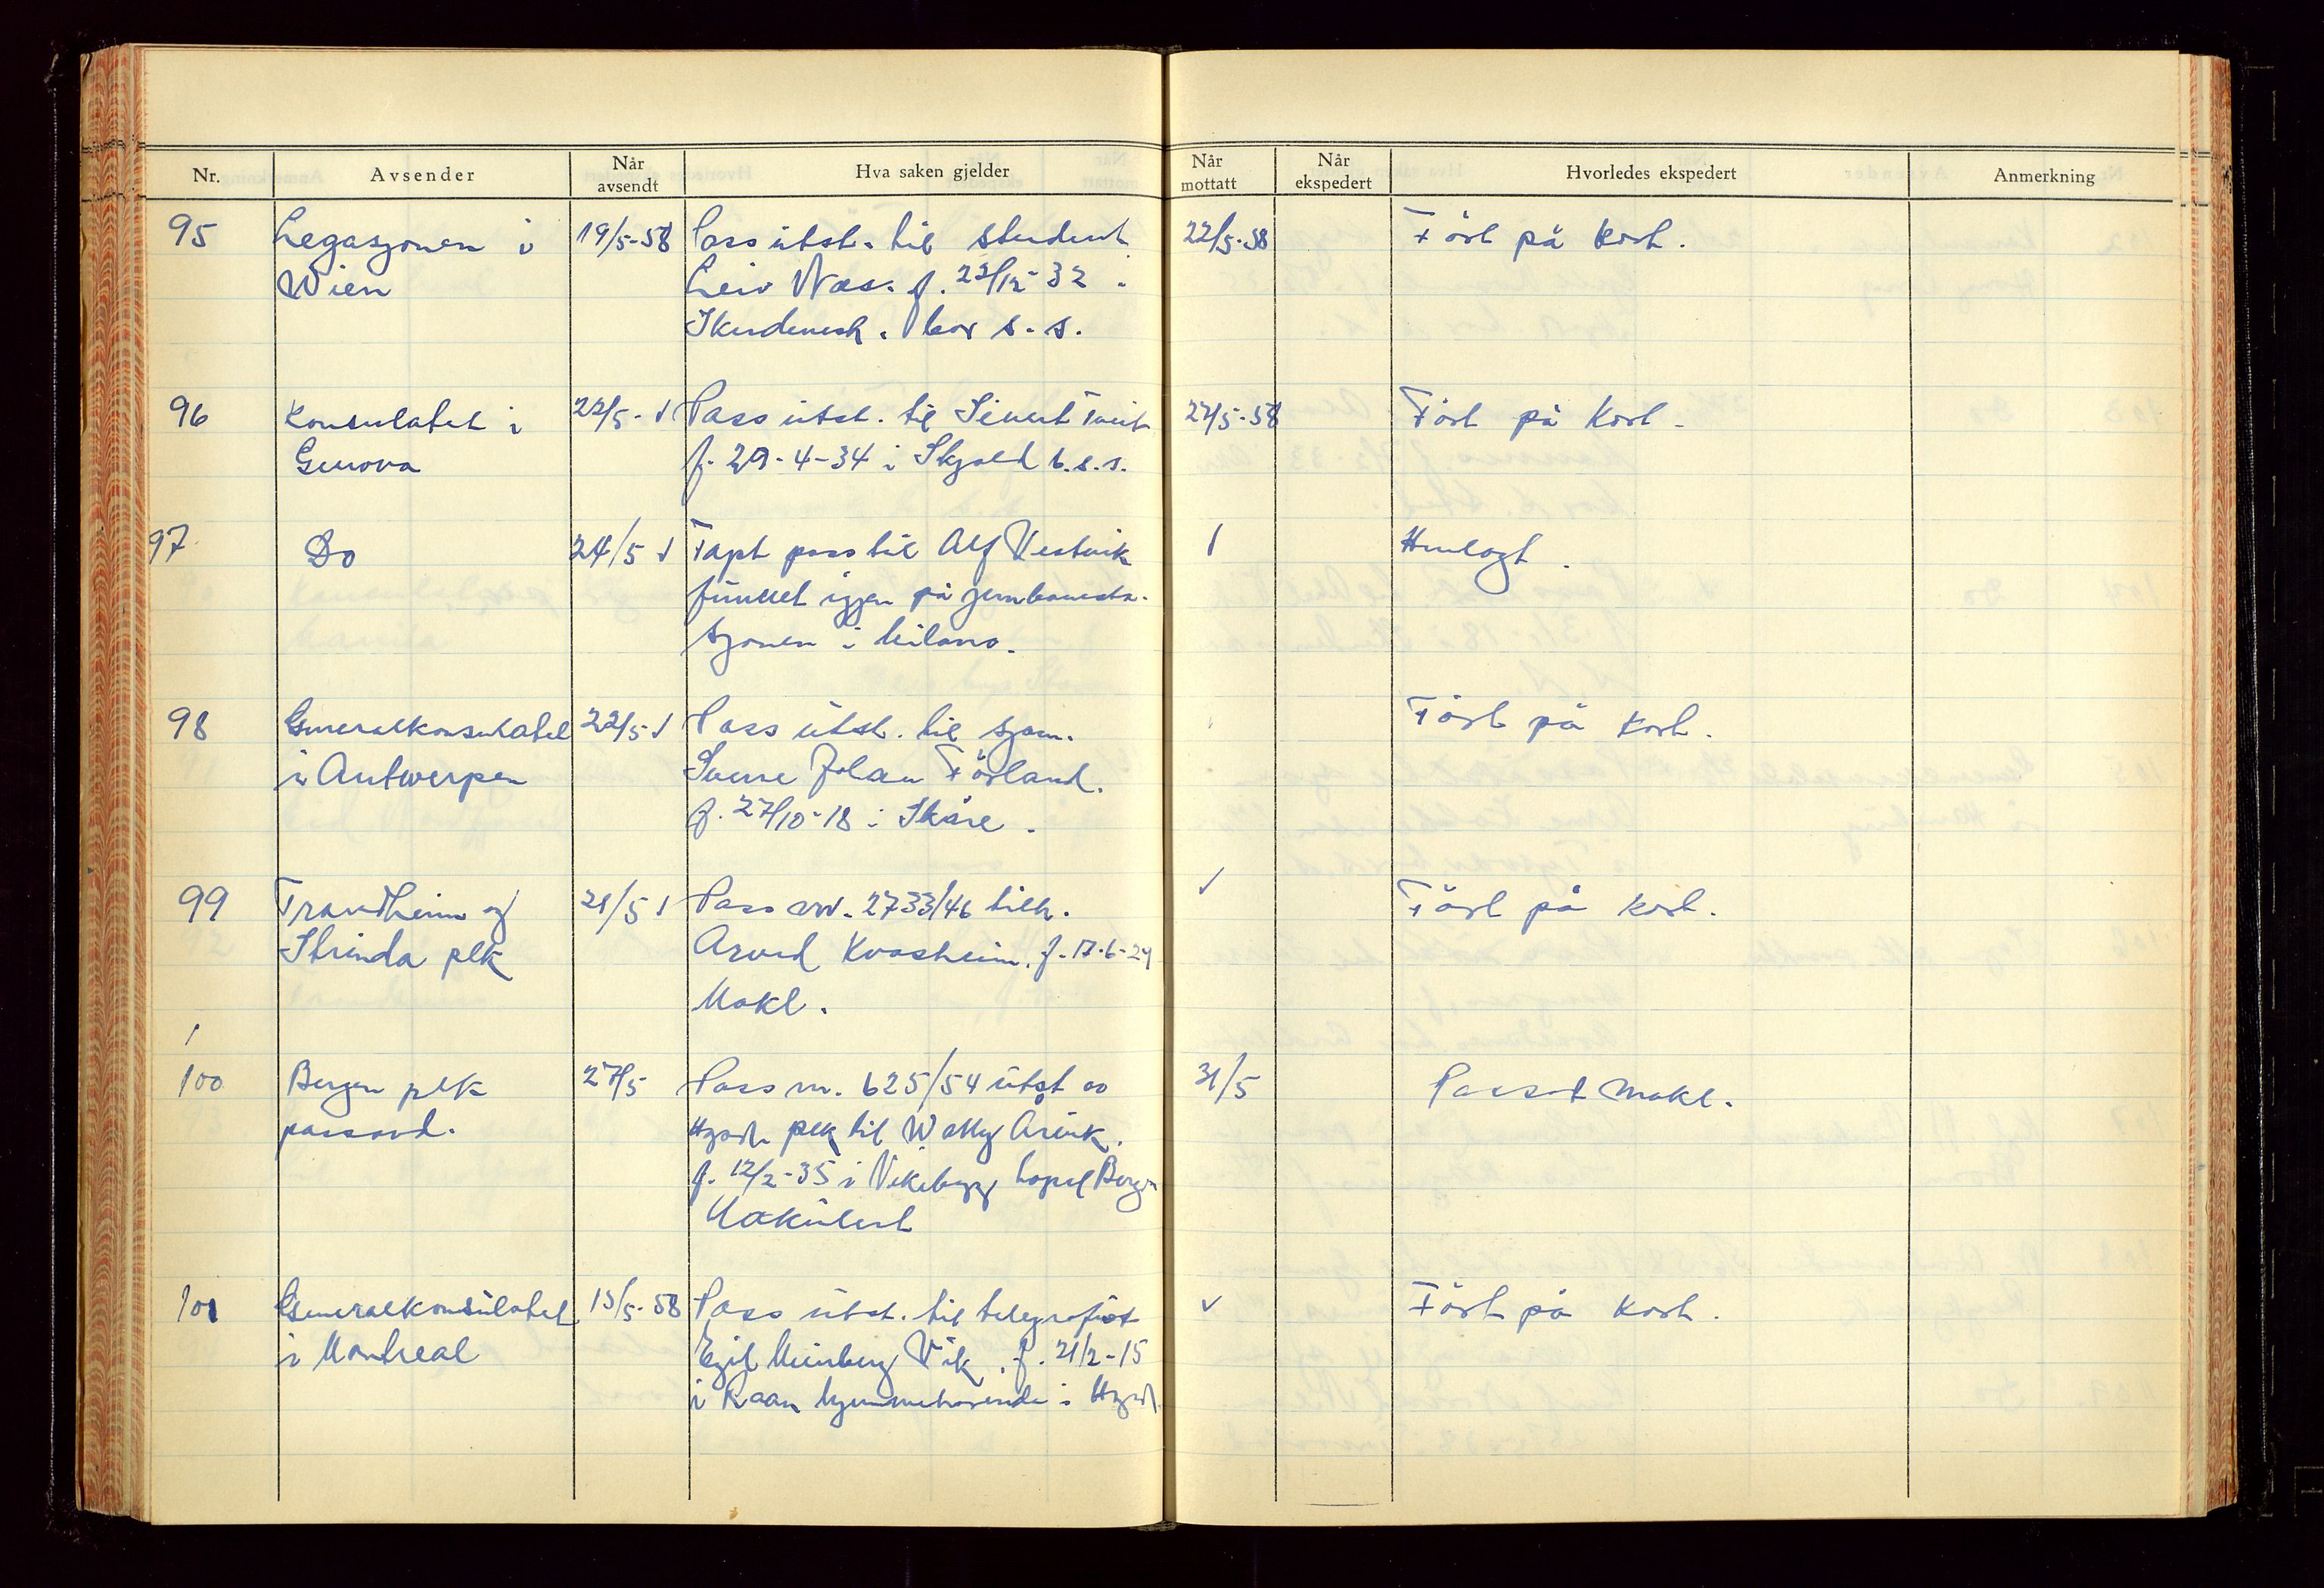 Nr. Avsender Når avsendt Hva saken gjelder Når mottatt Når ekspedert Hvorledes ekspedert Anmerkning
95 Legasjonen i 19/5-58 Pass utst. til student 22/5-58 Ført på kort.
Wien Leiv Næs. f. 22/12-32 i
Skudenesh. bor s.s.
96 Konsulatet i 22/5- Pass utst. til Sivert Tveit 27/5-58 Ført på kort.
Genova f. 29-4-34 i Skjold b.s.s.
97 Do 24/5 Tapt pass til Alf Vestvik Henlagt.
funnet igjen på jernbanesta-
sjonen i Milano.
98 Generalkonsulatet 22/5- Pass utst. til sjøm. Ført på kort.
i Antwerpen Sverre Johan Førland.
f. 27/10-18 i Skåre.
99 Trondheim og 21/5 Pass nr. 2733/46 tilh. ✓ Ført på kort.
Strinda plk Arvid Kvasheim. f. 17-6-29
Makl.
100 Bergen plk 27/5 Pass nr. 625/54 utst av 31/5 Passet makl.
passavd. Hgsd plk til Wally
f. 12/2-35 i Vikebygg Bergen
Makulert
101 Generalkonsulatet 15/5-58 Pass utst. til telegrafist ✓ Ført på kort.
i Montreal Egil Vik. f. 21/2-15
i hjemmehørende i Hgsd.